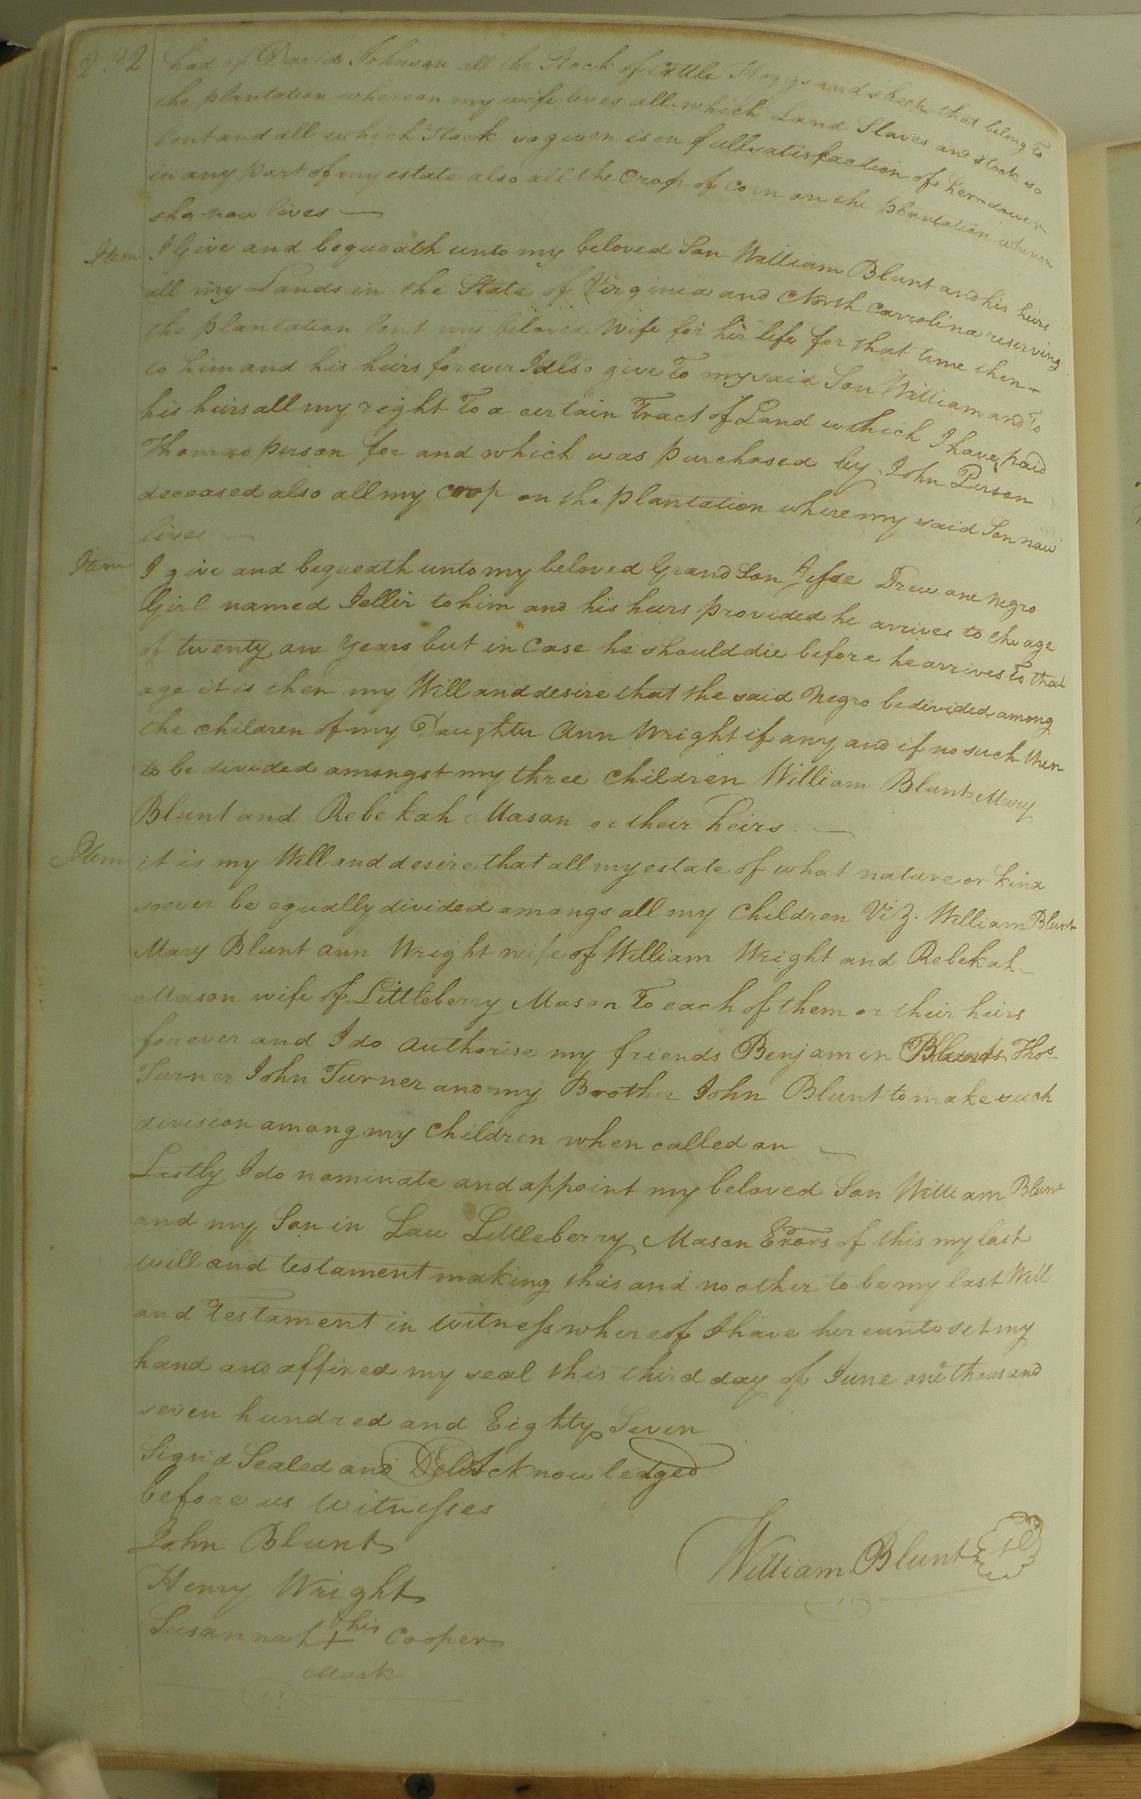 232
had of David Johnson all the Stock of Cattle Hoggs and sheek that belong to
the plantation whereon my wife lives all which Land Slaves and stock so
lent and all which Stock so given is in full satisfaction of her dower
in any part of my estate also all the Crop of corn on the plantation whereon
she now lives —
Item I Give and bequeath unto my beloved Son William Blunt and his heirs
all my Lands in the State of Virginia and North Carrolina reserving
the plantation lent my beloved Wife for her life for that time then
to him and his heirs forever I also give To my said Son William and To
his heirs all my right To a certain Tract of Land which I have paid
Thomas person for and which was purchased by John Person
deceased also all my crop on the plantation where my said Son now
lives —
Item I give and bequeath unto my beloved Grand Son Jesse Drew one negro
Girl named to him and his heirs provided he arrives to the age
of twenty one Years but in Case he should die before he arrives To that
age it is then my Will and desire that the said Negro be devided among
the children of my Daughter Ann Wright if any and if no such then
to be divided amongst my three children William Blunt Mary
Blunt and Rebekah Mason or their heirs —
Item it is my Will and desire that all my estate of what nature or kind
soever be equally divided amongs all my children Viz. William Blunt
Mary Blunt ann Wright wife of William Wright and Rebekah
Mason wife of Littleberry Mason To each of them or their heirs
forever and I do authorise my friends Benjamin Blunt Thos
Turner John Turner and my Brother John Blunt to make such
division among my children when called on —
Lastly I do nominate and appoint my beloved Son William Blunt
and my Son in Law Littleberry Mason Exors of this my last
will and testament making this and no other to be my last Will
and Testament in witness whereof I have hereunto set my
hand and affixed my seal this third day of June one thousand
seven hundred and Eighty Seven
Signd Sealed and Deld Acknowledged
before us witnesses
John Blunt
William Blunt
Henry Wright
Susannah + his Cooper
Mark